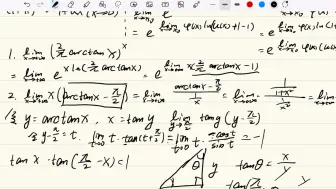 = e^{lim_{x→x₀} φ(x) ln(u(x)+1-1)}
= e^{lim_{x→x₀} φ(x)(u(x)
1. lim_{x→+∞} (2/π arctan x)^x
= lim_{x→+∞} e^{x ln(2/π arctan x)} = e^{lim_{x→+∞} x(2/π arctan x - 1)}
2. lim_{x→+∞} x(arctan x - π/2) = lim_{x→+∞} (arctan x - π/2)/(1/x) = lim_{x→+∞}
令 y = arctan x, x = tan y lim_{y→π/2} tan y (y - π/2)
令 y - π/2 = t. lim_{t→0} t · tan(t + π/2) = lim_{t→0} t · -cos t/sin t = -1
tan x · tan(π/2 - x) = 1
θ
y
x
tan θ = x/y